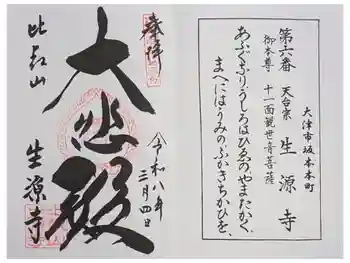 奉拝
大悲殿
比叡山
生源寺
令和八年
三月四日
大津市坂本本町
第六番 天台宗 生源寺
御本尊 十一面観世音菩薩
あふぐよりうしろはひゑのやまたかく
まへにはうみのふかきちかひを